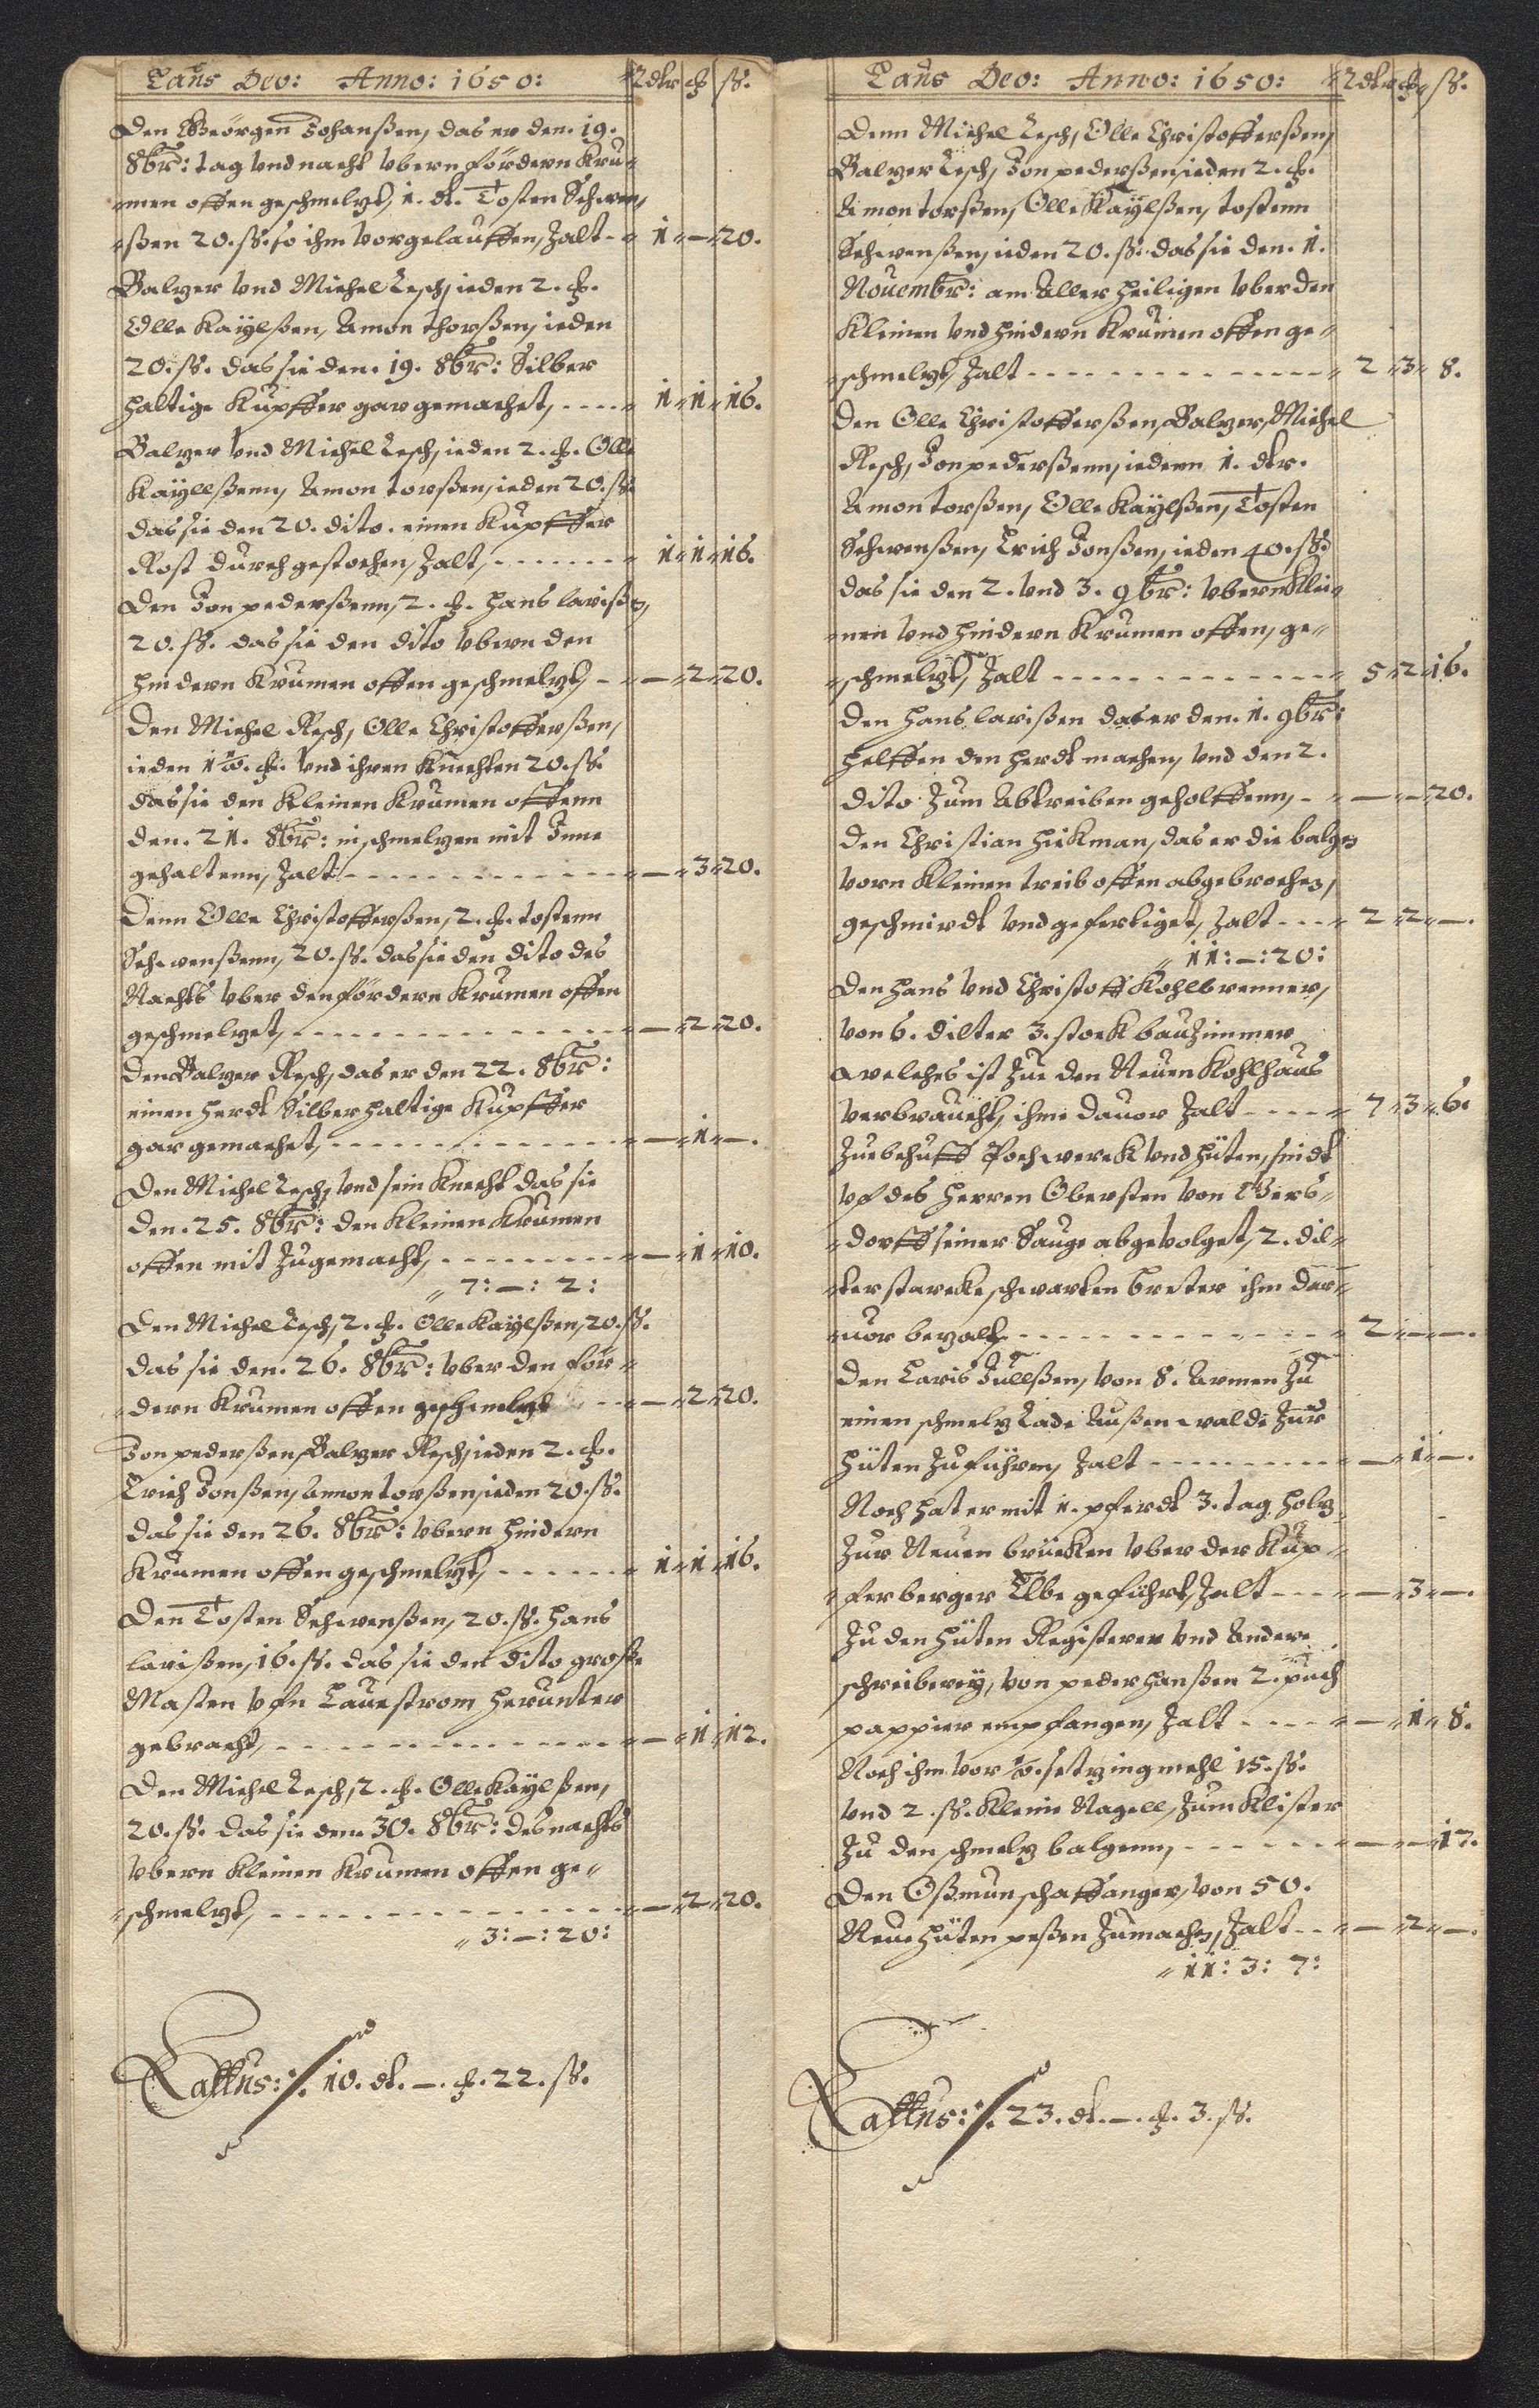 Laus Deo: Anno: 1650: Rdlr ℔ ß.
Den Geörgen Johanßen, das er den 19.
8br̃: tag vnd nacht vbern fördern Kru-
men offen geschmeltzt, 1. dl. Tosten Schwen,
ßen 20. ß. so ihm vorgelauffen, Zalt - 1 - — - 20.
Baltzer vnd Michel Resch, ieden 2. ℔.
Olle Kaÿlßen, Amon thorßen, ieden
20. ß. das sie den. 19. 8br̃: Silber
haltige Kupffer gar gemachet, - 1 - 1 - 16.
Baltzer vnd Michel Resch, ieden 2. ℔. Olle
Kaÿllßenn, Amon torßen, ieden 20. ß.
das sie den 20. dito. einen Kupffer
Rost durch gestochen, Zalt, - 1 - 1 - 16.
Den Jon pederßenn, 2. ℔. Hans larißen,
20. ß. das sie den dito vbern den
hindern Krumen offen geschmeltzt, - — - 2 - 20.
Den Michel Resch, Olle Christofferßen,
ieden 1½. ℔. vnd ihren Knechten 20. ß.
das sie den Kleinen Krumen offenn
den. 21. 8br̃: in schmeltzen mit Inne
gehaltenn, Zalt - — - 3 - 20.
Denn Olle Christofferßen, 2. ℔. tostenn
Schwenßenn, 20. ß. das sie den dito des
Nachts vber den fördern Krumen offen
geschmeltzet, - — - 2 - 20.
Den Baltzer Resch, das er den 22. 8br̃:
einen Herdt Silberhaltige Kupffer
gar gemachet, - — - 1 - —.
Den Michel Resch, vnd sein Knecht das sie
den. 25. 8br̃: den Kleinen Krumen
offen mit Zugemacht, - — - 1 - 10.
7: — : 2:
Den Michel Resch, 2. ℔. Olle Kaÿlßen, 20. ß.
das sie den. 26. 8br̃: vber den för-
dern Krumen offen geschmeltzt - — - 2 - 20.
Jon pederßen, Baltzer Resch, ieden 2. ℔.
Erich Jonßen, Amon torßen, ieden 20. ß.
das sie den 26. 8br̃: vbern hindern
Krumen offen geschmeltzt, - 1 - 1 - 16.
Den Tosten Schwenßen, 20. ß. Hans
larißen, 16. ß. das sie den dito große
Masten vfn Lauestrom herunter
gebracht, - — - 1 - 12.
Den Michel Resch, 2. ℔. Olle Kaÿlßen,
20. ß. das sie den. 30. 8br̃: des nachts
vbern Kleinen Krumen offen ge-
schmeltzt, - — - 2 - 20.
3: — : 20:
Lattus: ./. 10. dl. —. ℔. 22. ß.
Laus Deo: Anno: 1650: Rdlr ℔ ß.
Denn Michel Resch, Olle Christofferßen,
Baltzer Resch, Jon pederßen, ieden 2. ℔.
Amon torßen, Olle Kaÿlßen, tostenn
Schwenßen, ieden 20. ß. das sie den. 1.
Nouembr̃: am Aller Heiligen vber den
Kleinen vnd hindern Krumen offen ge-
schmeltzt, Zalt - 2 - 3 - 8.
Den Olle Christofferßen, Baltzer, Michel
Resch, Jon pederßenn, iedenn 1. dlr.
Amon torßen, Olle Kaÿlßen, Tosten
Schwenßen, Erich Jonßen, ieden 40. ß.
das sie den 2. vnd 3. 9br̃: vbern Klei-
nen vnd hindern Krumen offen, ge-
schmeltzt, Zalt - 5 - 2 - 16.
Den Hans larißen das er den. 1. 9br̃:
helffen den herdt machen, vnd den 2.
dito Zum Abtreiben geholffenn, - — - — - 20.
Den Christian Hickman, das er die balgen
vorn Kleinen treib offen abgebrochen,
geschmirdt vnd gefertiget, Zalt - 2 - 2 - —.
11: — : 20:
Den Hans vnd Christoff Kohlbrenner,
von 6. dilter 3. stock bau Zimmer
welches ist Zue den Neuen Kohlhaus
verbraucht, ihme dauor Zalt - 7 - 3 - 6.
Zue behuff Pochwerck vnd hüten, seindt
vf des Herren Obersten von Gers-
dorff seiner Sauge abgevolget, 2. dil-
ter starcke schwarten breter ihm dar-
uor bezalt, - 2 - — - —.
Den Laris Zullßen, von 8. Armen Zu
einen schmeltz Lade Außen walde Zur
hüten Zu führen, Zalt - — - 1 - —.
Noch hat er mit 1. pferdt 3. tag holtz
Zur Neuen brücken vber der Kup-
ferberger Elbe geführt, Zalt - — - 3 - —.
Zu den hüten Registeren vnd Andere
schreiberey, von peder Hanßen 2. puch
pappier empfangen, Zalt - — - 1 - 8.
Noch ihm vor ½. setzingmehl 15. ß.
vnd 2. ß. Kleine Nagell, Zum Klister
Zu den schmeltz balgenn, - — - — - 17.
Den Oßmun schaffanger, von 50.
Neue hüten peßen Zumachen, Zalt - — - 2 - —.
11: 3: 7:
Lattus: ./. 23. dl. —. ℔. 3. ß.